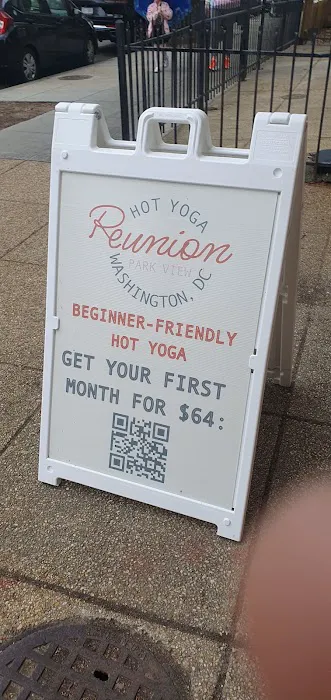 HOT YOGA
Reunion
PARK VIEW
WASHINGTON, DC
BEGINNER-FRIENDLY
HOT YOGA
GET YOUR FIRST
MONTH FOR $64: